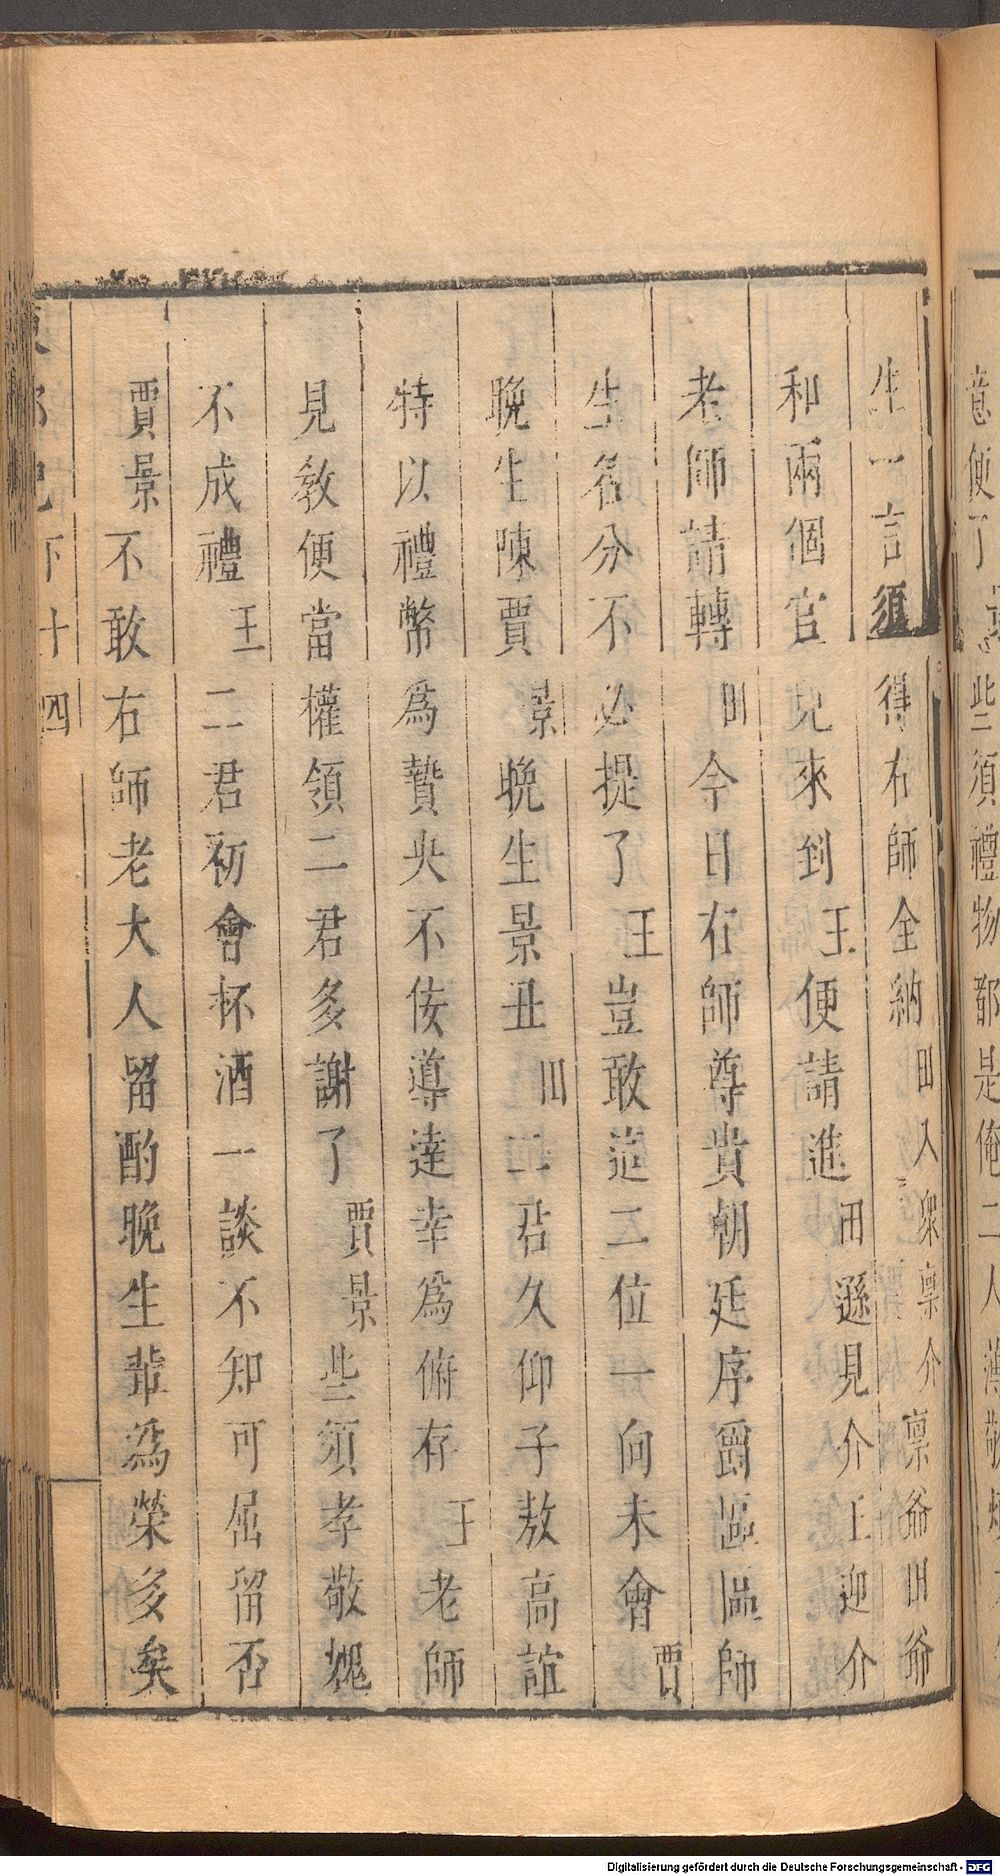 意便了
些須禮物都是俺二人薄敬
生一言須得右師全納田入眾稟介稟爺田爺
和兩個官兒來到王便請進田遜見介王迎介
老師請轉田今日右師尊貴朝廷序爵區區師
生名分不必提了王豈敢這二位一向未會賈
晚生陳賈景晚生景丑田二君久仰子敖高誼
特以禮幣為贄央不佞導達幸為俯存王老師
見教便當權領二君多謝了賈景些須孝敬愧
不成禮王二君初會杯酒一談不知可屈留否
賈景不敢右師老大人留酌晚生輩為榮多矣
下十四
Digitalisierung gefördert durch die Deutsche Forschungsgemeinschaft - DFG